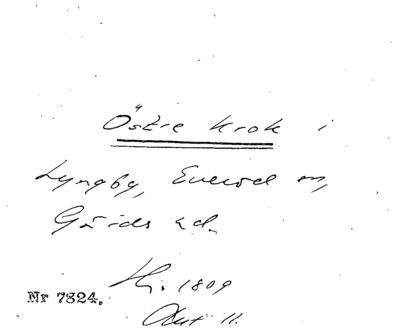 Östre Krok i
Lyngby, Everöd m,
Gärds hd.
Hj. 1809
Nr 7824.
Akt 11.